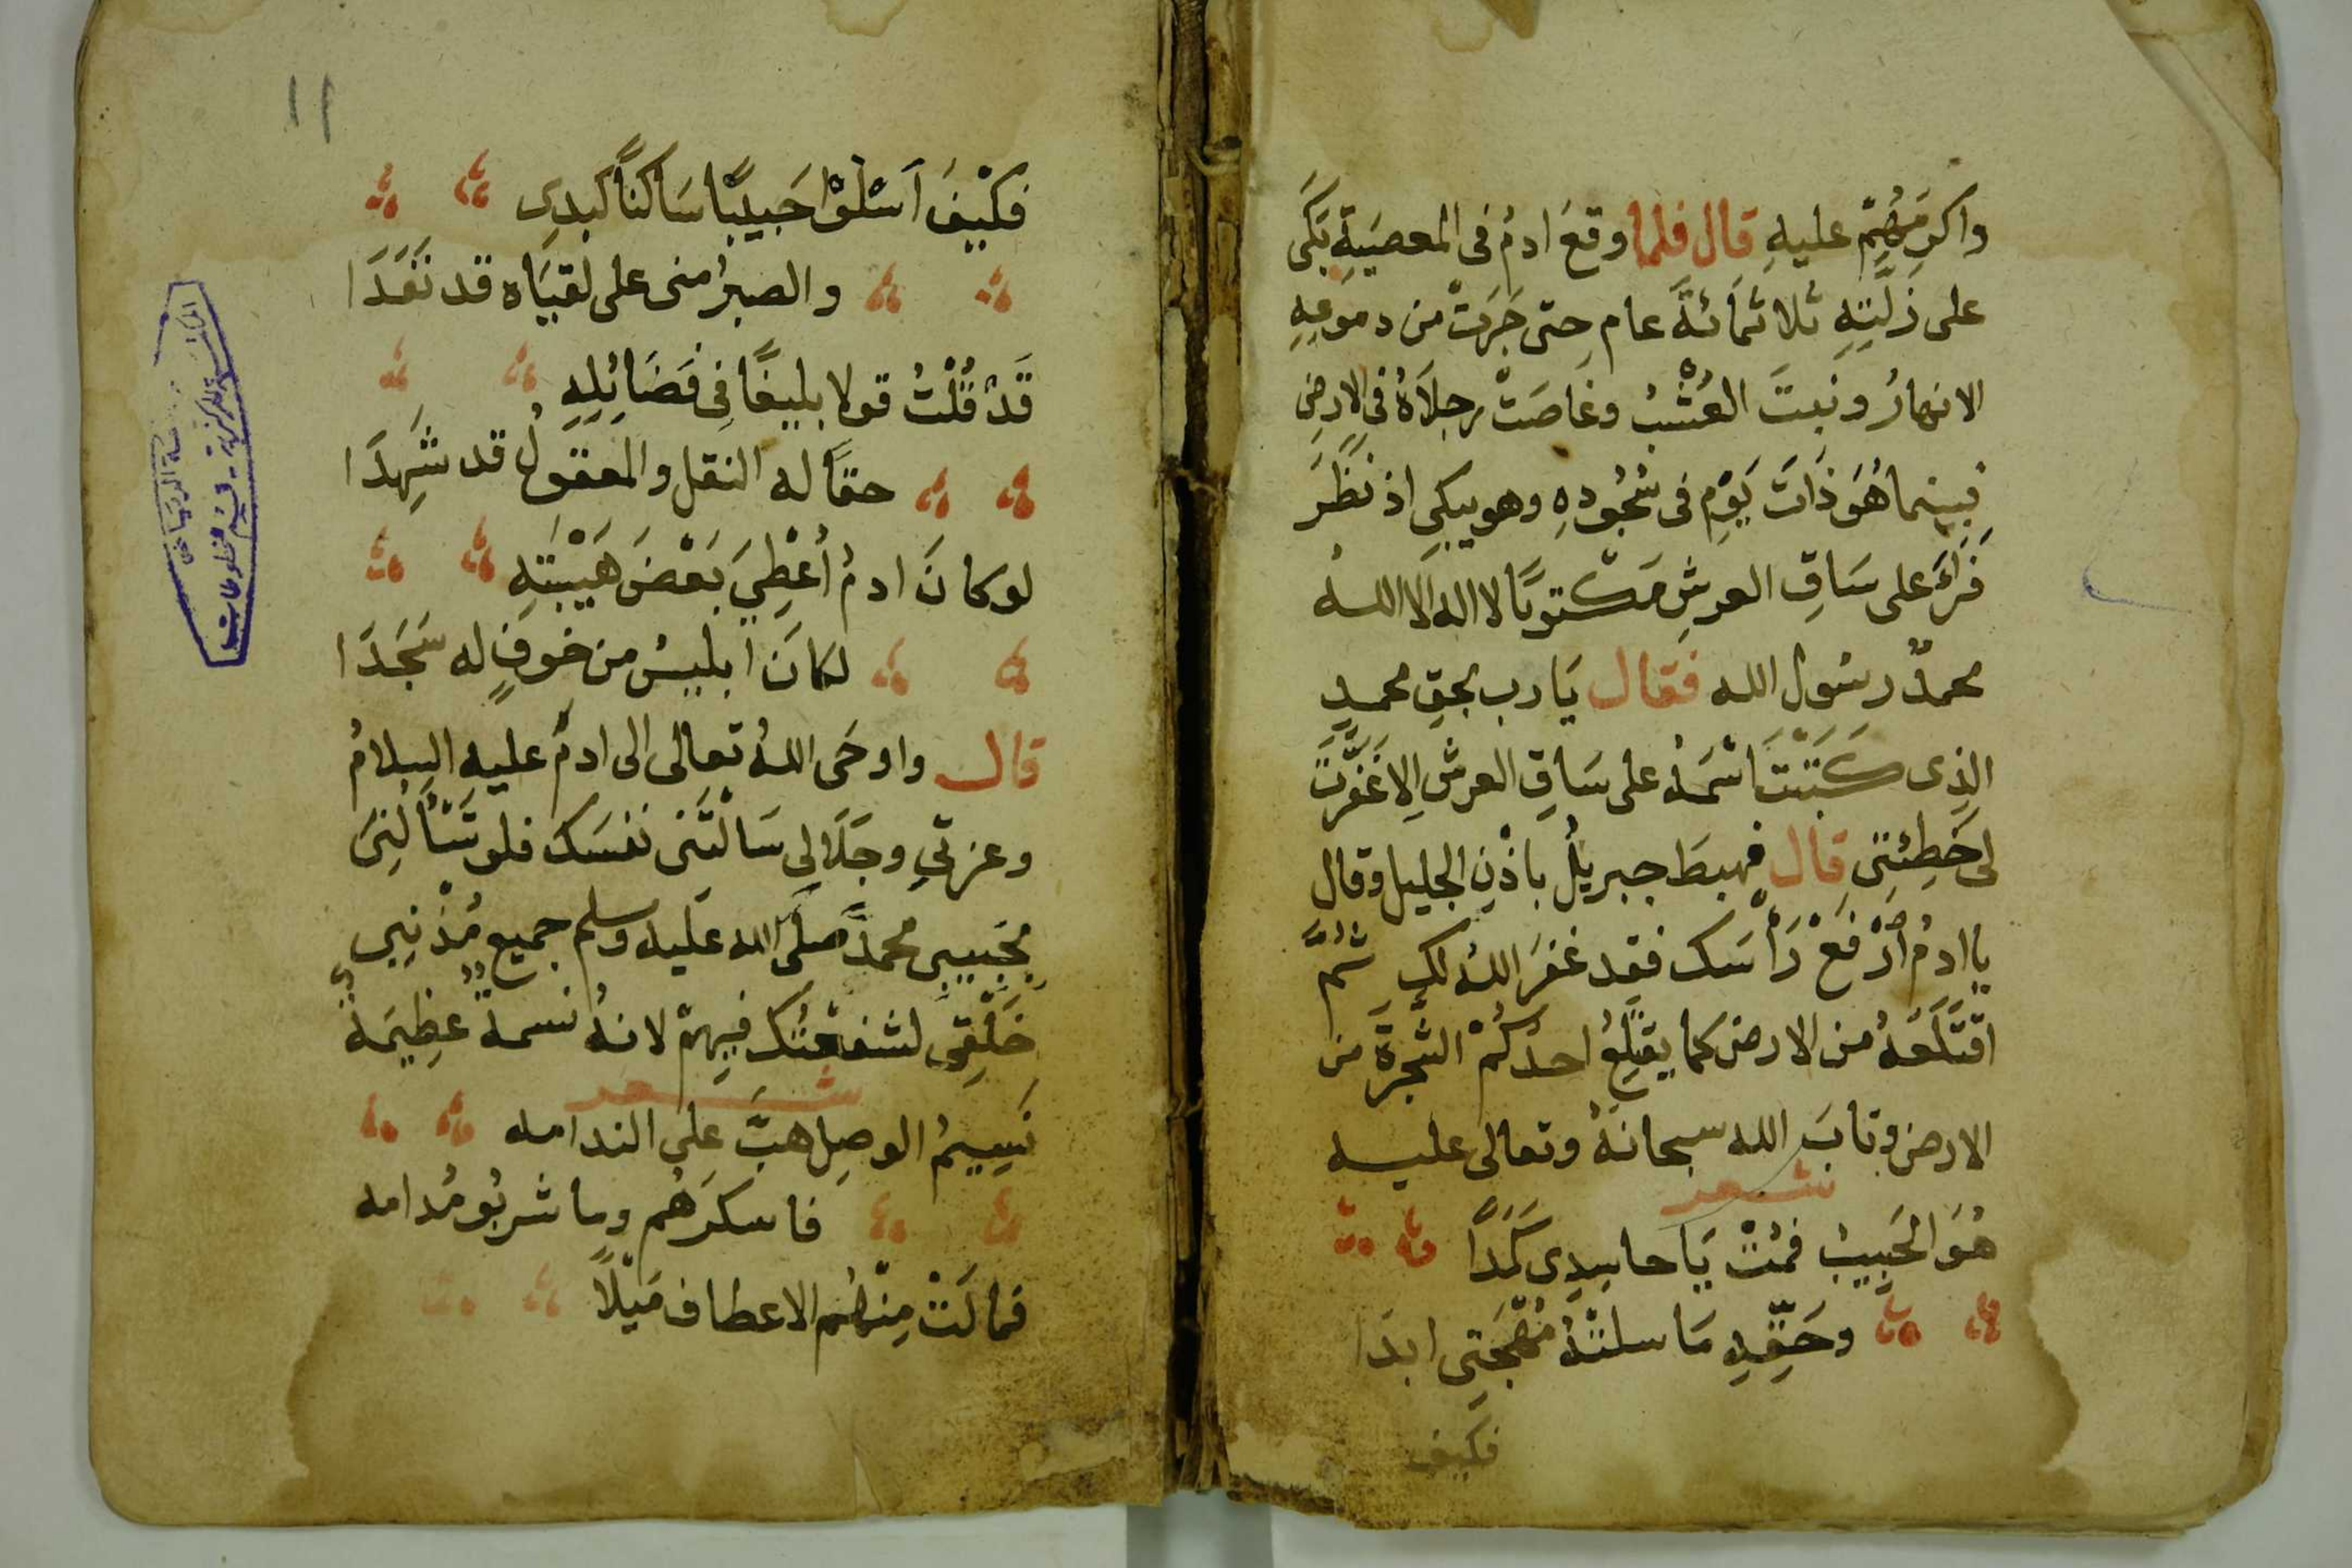 واكرِمَهُمْ عليهِ قال فلما وقعَ ادمُ فى المعصيَةِ بَكَى
على زلَّتِهِ ثلاثمَائةَ عام حتى جَرَتْ من دموعِهِ
الانهارُ ونبتَ العُشْبُ وغاصَتْ رجلَاهُ فى الارضِ
فبينما هُوَ ذَاتَ يَوْمٍ فى سُجُودِهِ وهو يبكي اذ نَظَرَ
فَرَأىَ على سَاقِ العرشِ مَكتوبًا لا اله الا الله
محمدٌ رسُول الله فقال يَا رب بحقِ محمدٍ
الذِى كَتَبْتَ اسْمَهُ على سَاقِ العرش الا غَفَرْتَ
لى خَطِئتِى قال فهبطَ جبريلُ باذْنِ الجليل وقال
يا ادمُ ارْفَعْ رَأْسَك فقد غفرَ اللهُ لك ثُمَّ
اقتَلَعَهُ من الارض كما يقتلِعُ احدُكُمْ الشجرَةَ من
الارض وتابَ الله سبحانهُ وتعالى عليه
شعر
هُوَ الحَبِيبُ فمُتْ يَا حاسِدِى كَمَدًا
وحَقِّهِ مَا سلتْهُ مُهْجَتِى ابدَا
فكيف
١١
فكَيْفَ اَسْلُوْا حَبِيبًا سَاكنًا كبدِى
والصبرُ منى على لقيَاه قد نَفَدَا
قَدْ قُلْتُ قولا بليغًا فِى فَضَائِلِهِ
حقًا له النقل والمعقولُ قد شَهِدَا
لو كانَ ادمُ أُعْطِيَ بَعْضَ هَيْبَتِهِ
لكانَ ابليسُ من خوفٍ له سَجَدَا
قال واوحَى اللهُ تعالى الى ادمَ عليه السلامُ
وعزتِي وجَلَالِى سَالْتَنى نفسَك فلو تَسْأَلُنِى
بحَبيبى محمدً صلَّى الله عليه وسلم جميع مُذْنِبِي
خَلْقِى لشفعْتُك فيهمْ لانهُ نسمة عظِيمَة
شعر
نَسِيمُ الوصِل هبَّ على الندامه
فاسكرَهُم وما شربُو مُدامه
فمالَتْ مِنْهُم الاعطاف مَيْلًا
المكتبة المركزية - قسم المخطوطات